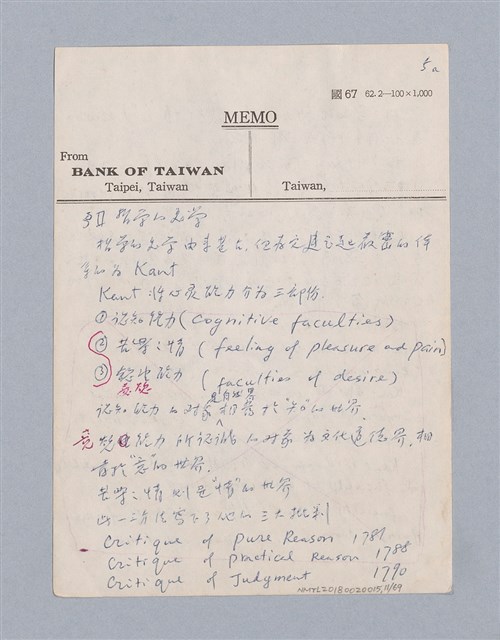 5a
國67 62.2—100×1,000
MEMO
From
BANK OF TAIWAN
Taipei, Taiwan
Taiwan,
哲学的美学
哲学的美学由來甚古,但真定建立起嚴密的体
系的為 Kant
Kant 将心灵能力分為三部份.
① 認知能力 (Cognitive faculties)
② 苦樂之情 (feeling of pleasure and pain)
③ 能力 (faculties of desire)
意欲
是自然界
認知能力的對象 相當於"知"的世界.
意欲能力所認識的对象為文化道德界,相
當於"意"的世界.
苦樂之情則是"情"的世界
寫下了他的三大批判
Critique of pure Reason 1781
Critique of practical Reason 1788
Critique of Judgment 1790
NMTL20180020015,11/69